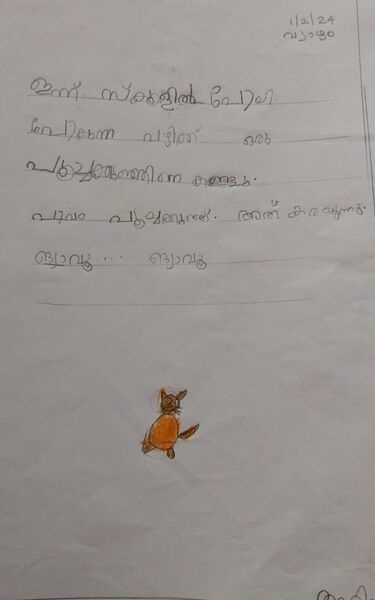 1/2/24
വ്യാഴം
ഇന്ന് സ്കൂളിൽ പോയി
പോകുന്ന വഴിക്ക് ഒരു
പൂച്ചക്കുഞ്ഞിനെ കണ്ടു.
പാവം പൂച്ചക്കുഞ്ഞ്. അത് കരയുന്നു.
ങ്യാവൂ... ങ്യാവൂ